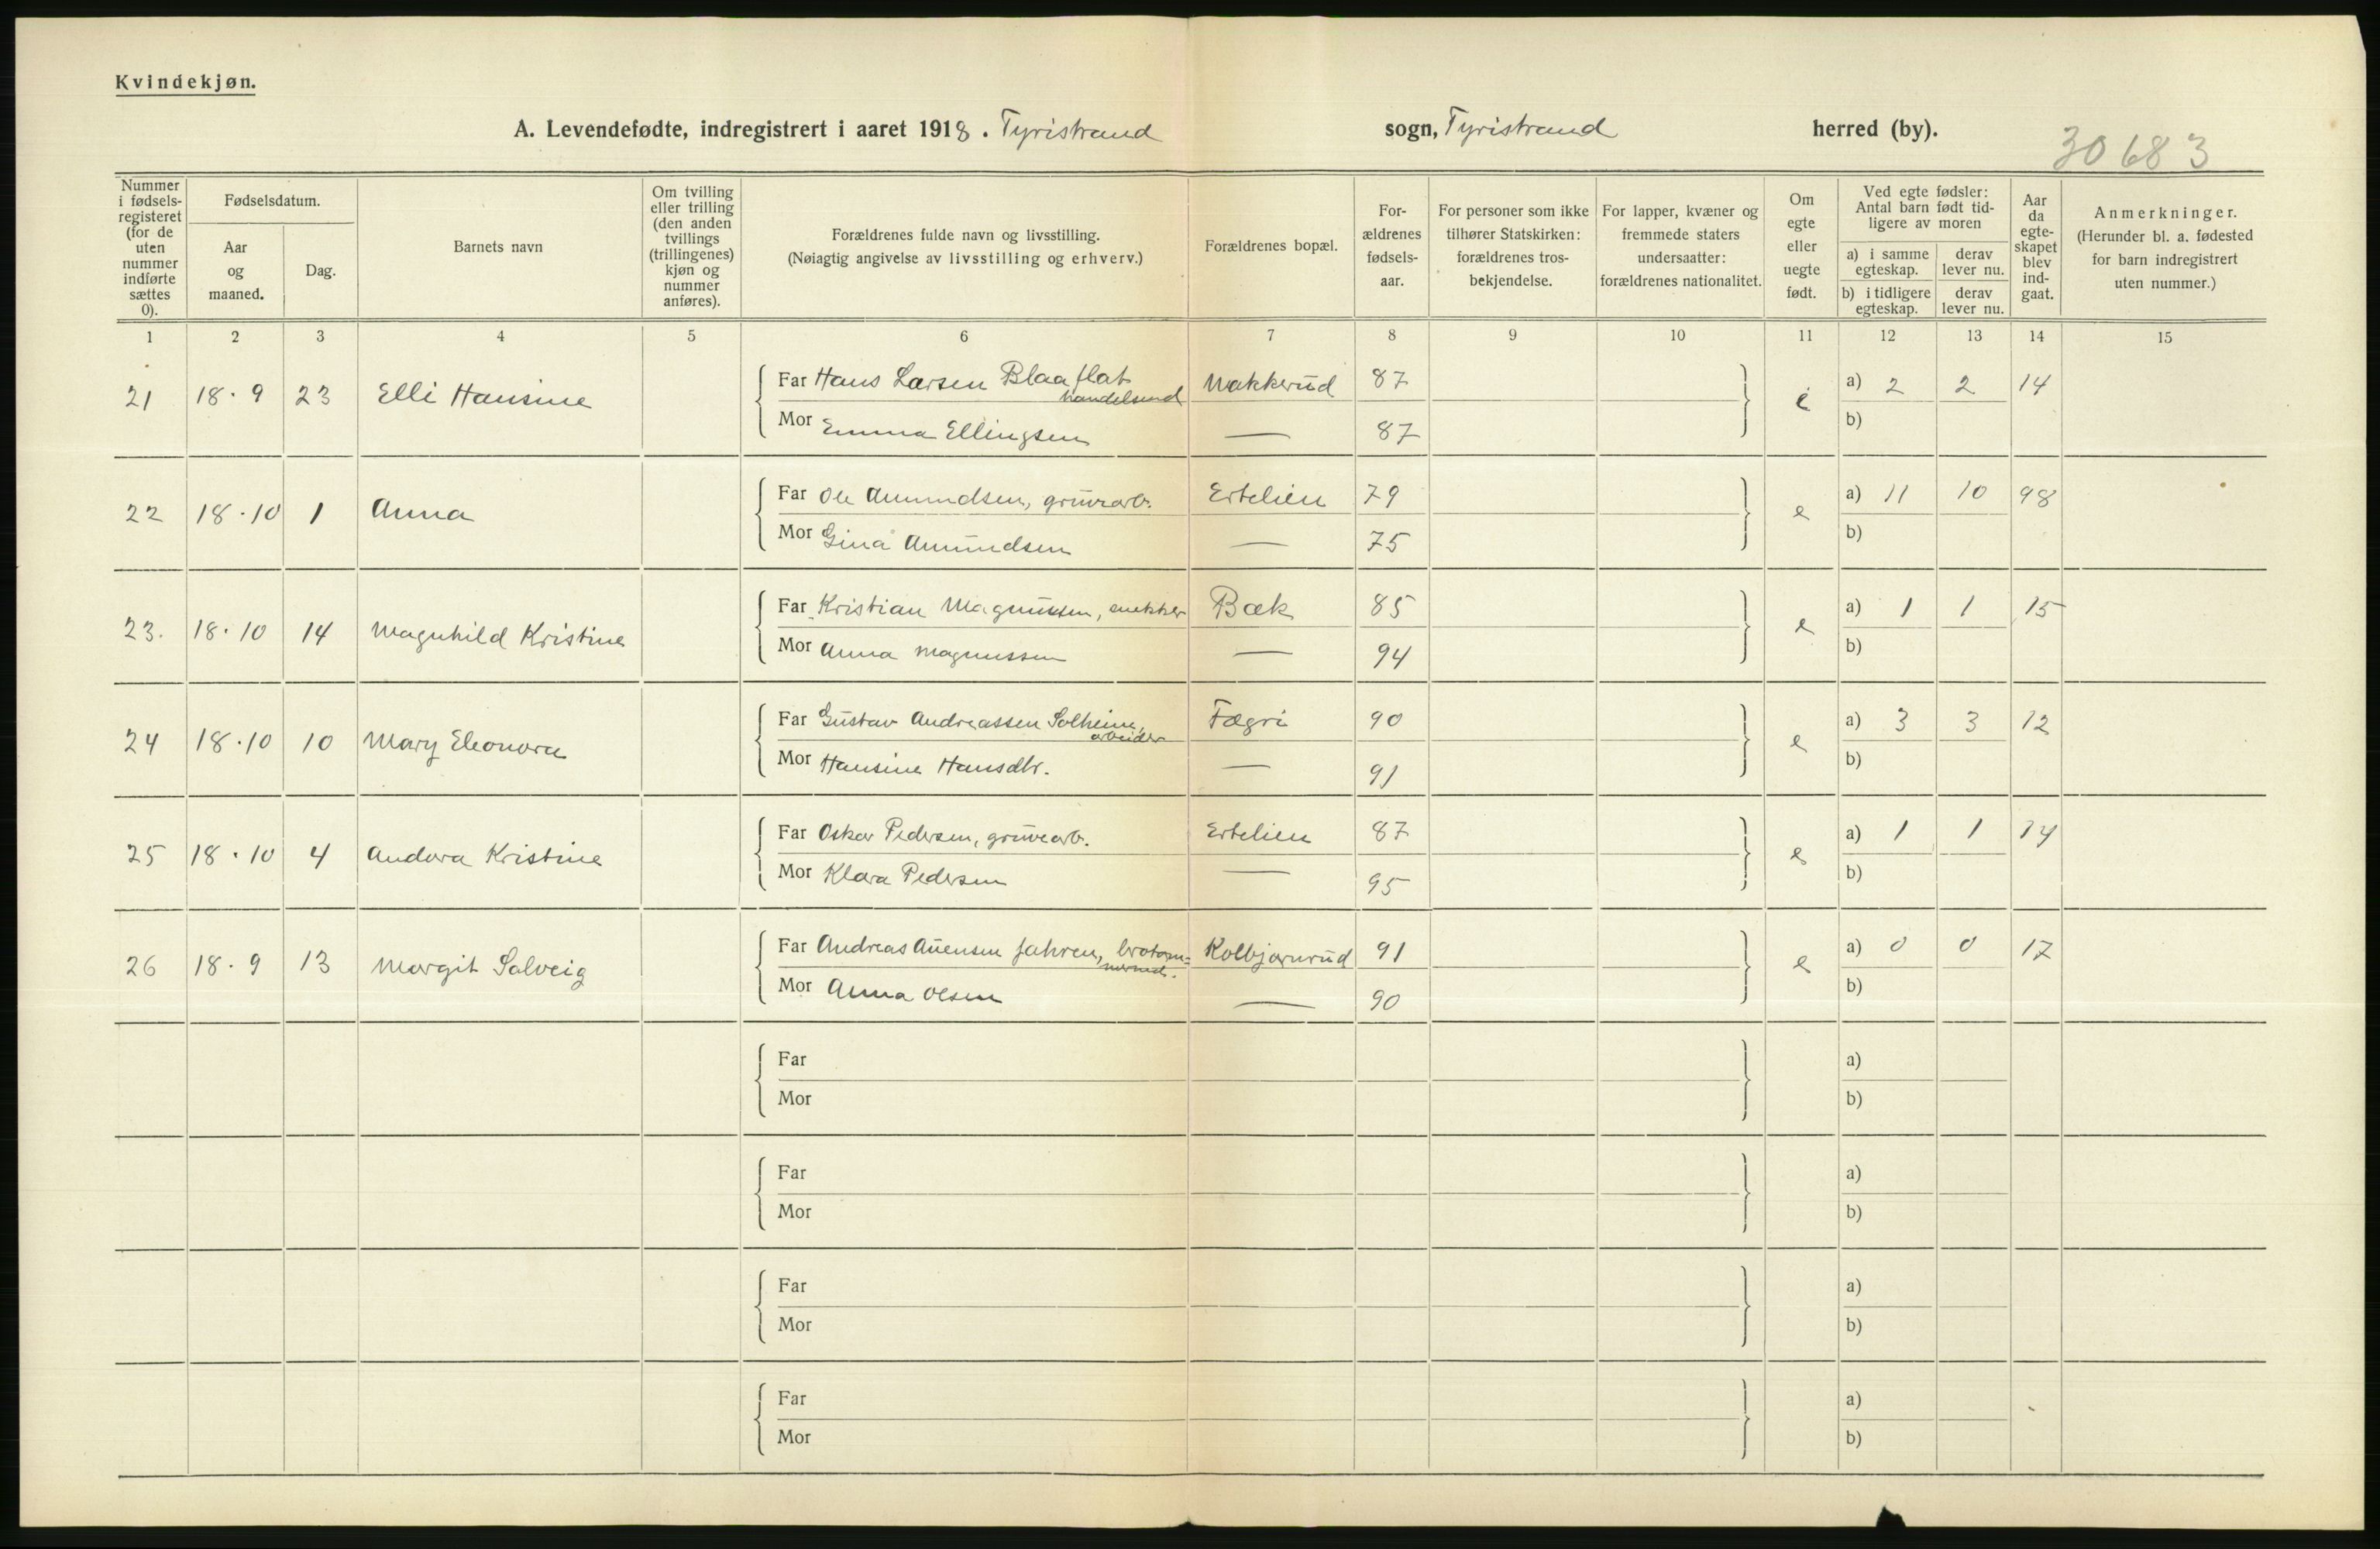 Kvindekjøn.
A. Levendefødte, indregistrert i aaret 1918. Tyristrand sogn, Tyristrand herred (by).
30683
Nummer i fødsels-registeret (for de uten nummer indførte sættes 0).
Fødselsdatum.
Aar og maaned.
Dag.
Barnets navn
Om tvilling eller trilling (den anden tvillings (trillingenes) kjøn og nummer anføres).
Forældrenes fulde navn og livsstilling.
(Nøiagtig angivelse av livsstilling og erhverv.)
Forældrenes bopæl.
For-ældrenes fødsels-aar.
For personer som ikke tilhører Statskirken: forældrenes tros-bekjendelse.
For lapper, kvæner og fremmede staters undersaatter: forældrenes nationalitet.
Om egte eller uegte født.
Ved egte fødsler: Antal barn født tid-ligere av moren
a) i samme egteskap.
derav lever nu.
b) i tidligere egteskap.
derav lever nu.
Aar da egte-skapet blev ind-gaat.
Anmerkninger.
(Herunder bl. a. fødested for barn indregistrert uten nummer.)
1 2 3 4 5 6 7 8 9 10 11 12 13 14 15
21 18.9 23 Elli Hansine Far Hans Larsen Blaaflat handelsmd Nakkerud 87 e a) 2 2 14
Mor Emma Ellingsen — 87 b)
22 18.10 1 Anna Far Ole Amundsen, gruvearb. Ertelien 79 e a) 11 10 98
Mor Gina Amundsen — 75 b)
23. 18.10 14 Magnhild Kristine Far Kristian Magnussen, snekker Bæk 85 e a) 1 1 15
Mor Anna Magnussen — 94 b)
24 18.10 10 Mary Eleonora Far Gustav Andreassen Solheim, arbeider Fægri 90 e a) 3 3 12
Mor Hansine Hansdtr. — 91 b)
25 18.10 4 Andora Kristine Far Oskar Pedersen, gruvearb. Ertelien 87 e a) 1 1 14
Mor Klara Pedersen — 95 b)
26 18.9 13 Margit Solveig Far Andreas Auensen Jahren, Kolbjørnrud 91 e a) 0 0 17
Mor Anna Olsen — 90 b)
Far a)
Mor b)
Far a)
Mor b)
Far a)
Mor b)
Far a)
Mor b)